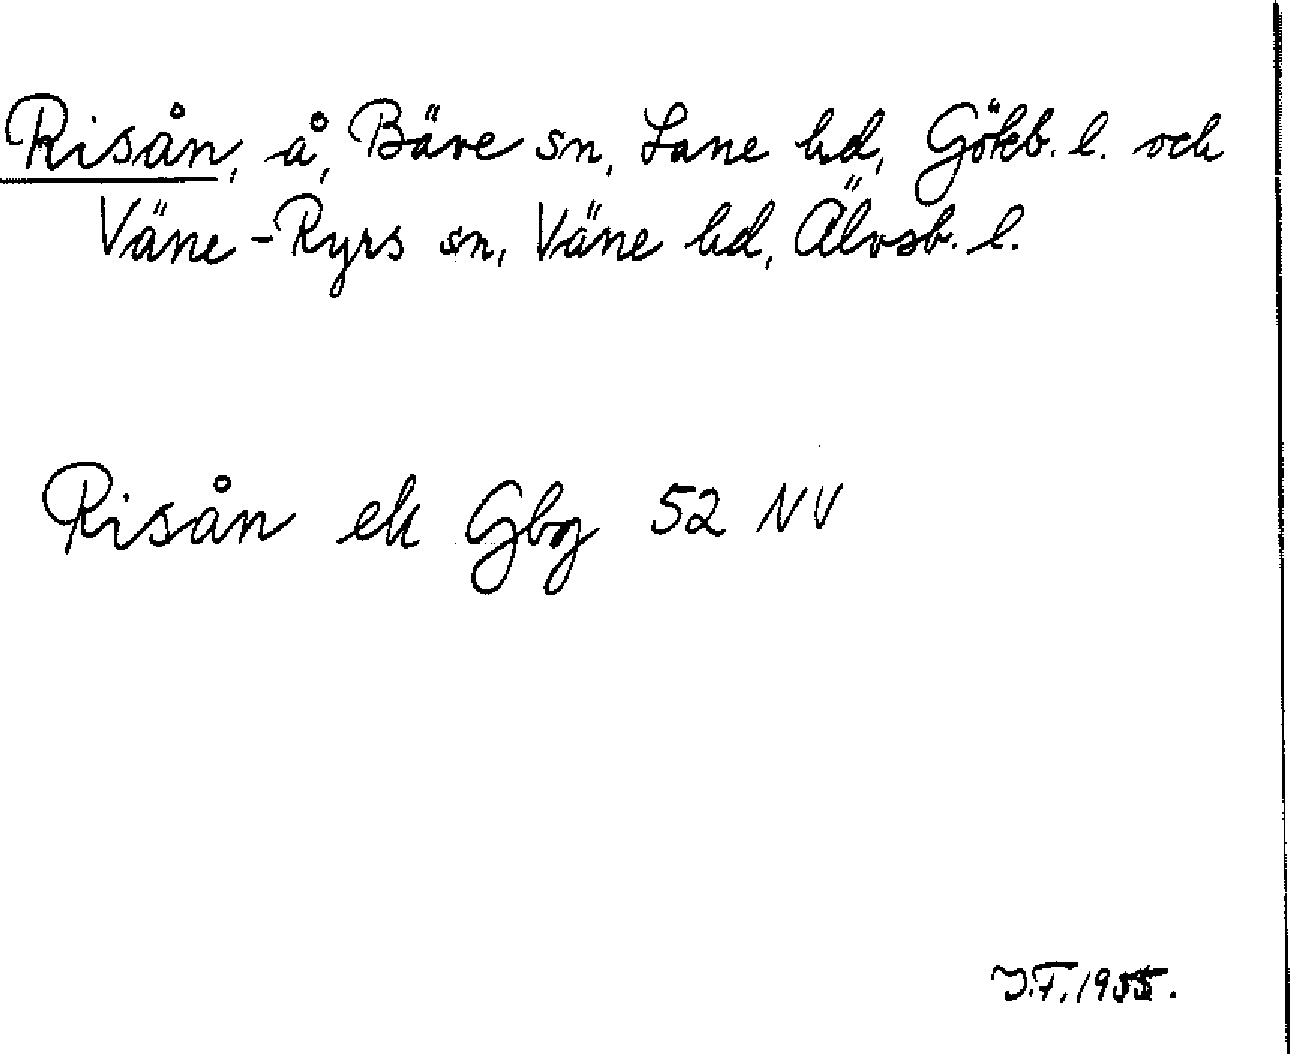 Risån, å, Bäve sn, Lane hd, Gökb. l. och
Väne-Ryrs sn, Väne hd, Älvsb. l.
Risån ek Gbg 52 NV
J.F. 1955.